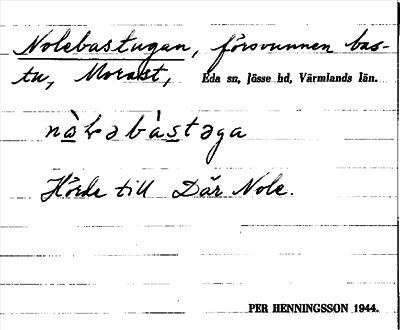 Nolebastugan, försvunnen bas-
tu, Morast, Eda sn, Jösse hd, Värmlands län.
nàɽəbàstəga
Hörde till Där Nole.
PER HENNINGSSON 1944.